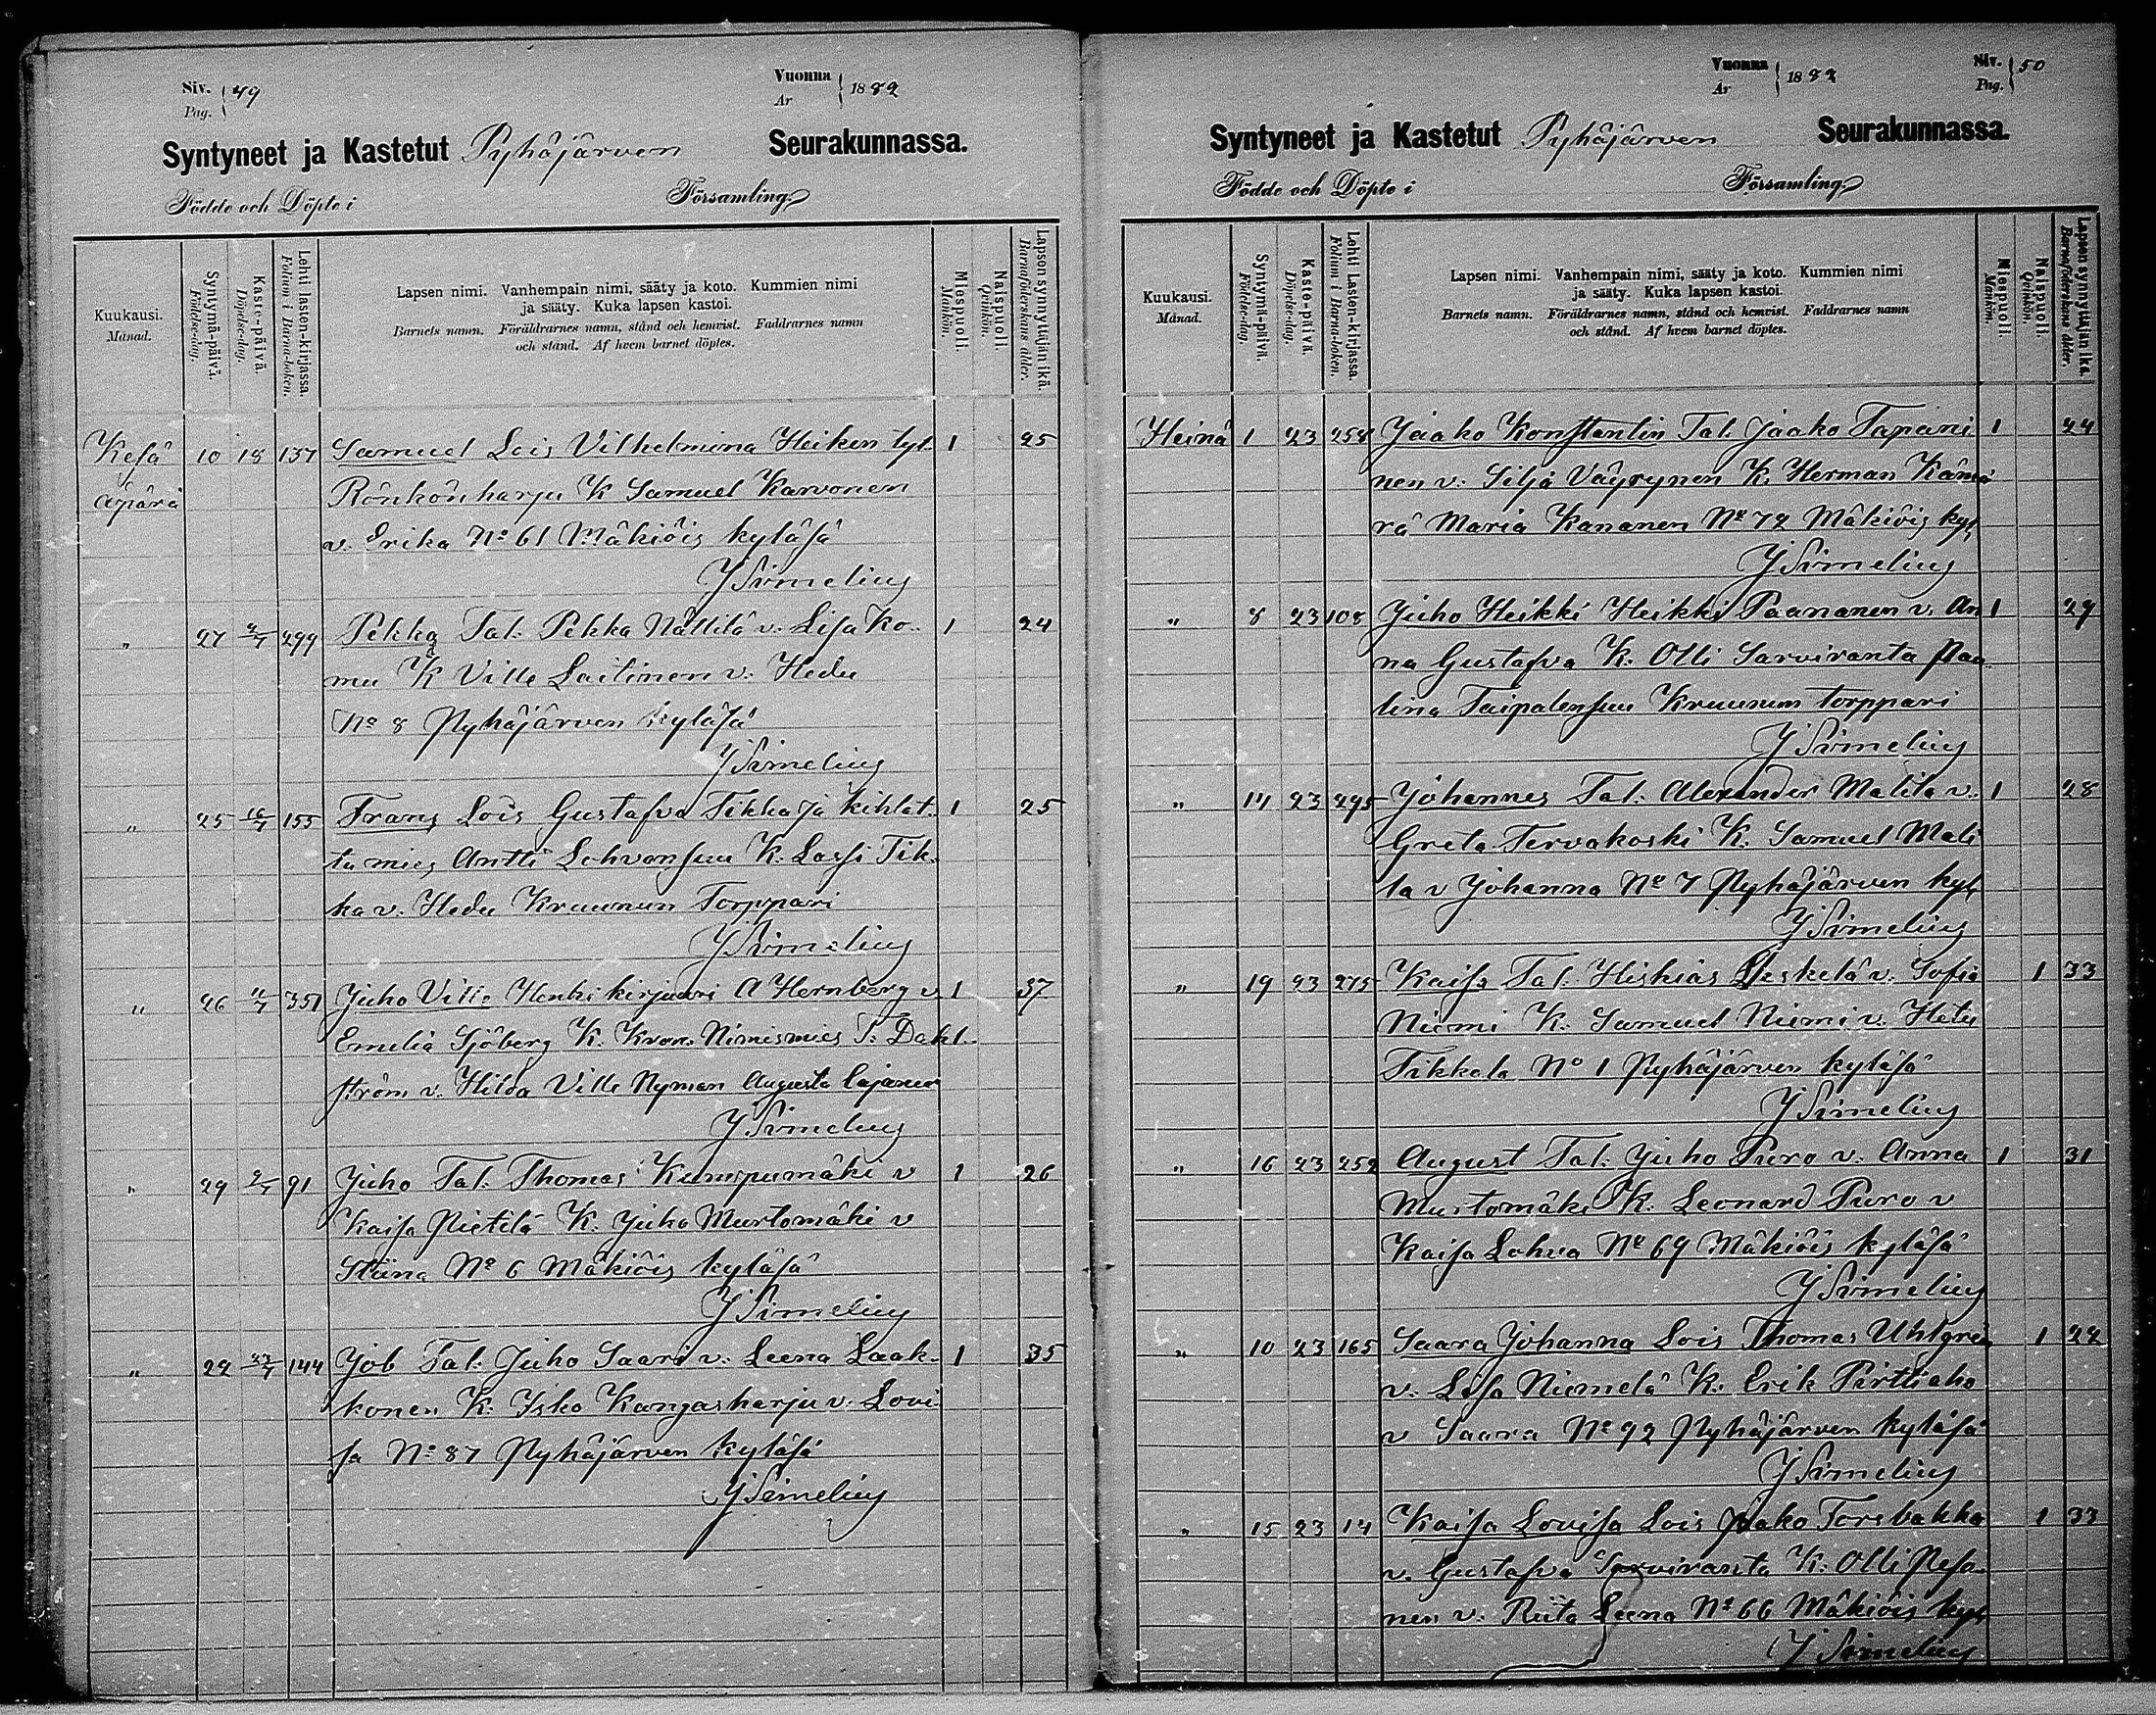 Siv. 49
Pag.
Vuonna 1882
År
Syntyneet ja Kastetut Pyhäjärven Seurakunnassa.
Födde och Döpte i Församling.
Kuukausi. Månad.
Syntymä-päivä. Födelse-dag.
Kaste-päivä. Döpelse-dag.
Lehti lasten-kirjassa. Folium i Barna-boken.
Lapsen nimi. Vanhempain nimi, sääty ja koto. Kummien nimi
ja sääty. Kuka lapsen kastoi.
Barnets namn. Föräldrarnes namn, stånd och hemvist. Faddrarnes namn
och stånd. Af hvem barnet döptes.
Miespuoli. Mankön.
Naispuoli. Qvinkön.
Lapsen synnyttäjän ikä. Barnaföderskans ålder.
Kesä 10 18 137 Samuel Lois Vilhelmina Heiken tyt. 1 25
äpärä Rönkönharju K Samuel Karvonen
v. Erika No 61 Mäkiöis kyläsä
J Simelius
" 27 299 Pekka Tal. Pekka Nällilä v. Lisa Ko- 1 24
mu K Ville Laitinen v. Hedu
No 8 Pyhäjärven kyläsä
J Simelius
" 25 16/7 155 Frans Lois Gustafva Tikka ja kihlat- 1 25
tu mies Antti Lohvansuu K. Lassi Tik-
ka v. Hedu Kruunun Torppari
J Simelius
" 26 351 Juho Ville Henkikirjuri A Hernberg v 1 37
Emelia Sjöberg K. Kron. Nimismies T. Dahl-
ström v. Hilda Ville Nyman Augusta Cajanus
J Simelius
" 29 2/7 91 Juho Tal. Thomas Kumpumäki v 1 26
Kaisa Pietilä K. Juho Murtomäki v
Stiina No 6 Mäkiöis kyläsä
J Simelius
" 22 144 Job Tal. Juho Saari v. Leena Laak- 1 35
konen K. Isko Kangasharju v. Lovi-
sa No 87 Pyhäjärven kyläsä
J Simelius
Vuonna 1882
År
Siv. 50
Pag.
Syntyneet ja Kastetut Pyhäjärven Seurakunnassa.
Födde och Döpte i Församling.
Kuukausi. Månad.
Syntymä-päivä. Födelse-dag.
Kaste-päivä. Döpelse-dag.
Lehti Lasten-kirjassa. Folium i Barna-boken.
Lapsen nimi. Vanhempain nimi, sääty ja koto. Kummien nimi
ja sääty. Kuka lapsen kastoi.
Barnets namn. Föräldrarnes namn, stånd och hemvist. Faddrarnes namn
och stånd. Af hvem barnet döptes.
Miespuoli. Mankön.
Naispuoli. Qvinkön.
Lapsen synnyttäjän ikä. Barnaföderskans ålder.
Heinä 1 23 258 Jaako Konstantin Tal. Jaako Tapani- 1 24
nen v. Silja Väyrynen K. Herman Kämä
rä Maria Kananen No 72 Mäkiöis kyl
J Simelius
" 8 23 108 Juho Heikki Heikki Paananen v. An 1 29
na Gustafva K. Olli Sarviranta Pau
lina Taipalensuu Kruunun torppari
J Simelius
" 14 23 295 Johannes Tal. Alexander Malila v. 1 28
Greta Tervakoski K. Samuel Mali
la v Johanna No 7 Pyhäjärven kyl
J Simelius
" 19 23 275 Kaisa Tal. Hiskias Leskelä v. Sofia 1 33
Niemi K. Samuel Niemi v. Hetu
Tikkala No 1 Pyhäjärven kyläsä
J Simelius
" 16 23 252 August Tal. Juho Puro v. Anna 1 31
Murtomäki K. Leonard Puro v
Kaisa Lohva No 69 Mäkiöis kyläsä
J Simelius
" 10 23 165 Saara Johanna Lois Thomas Uhlgren 1 22
v. Lisa Niemelä K. Erik Pirttiaho
v Saara No 92 Pyhäjärven kyläsä
J Simelius
" 15 23 14 Kaisa Lovisa Lois Jaako Forsbakka 1 33
v. Gustafva Sarviranta K. Olli Peso-
nen v. Riita Leena No 66 Mäkiöis kyl
J Simelius